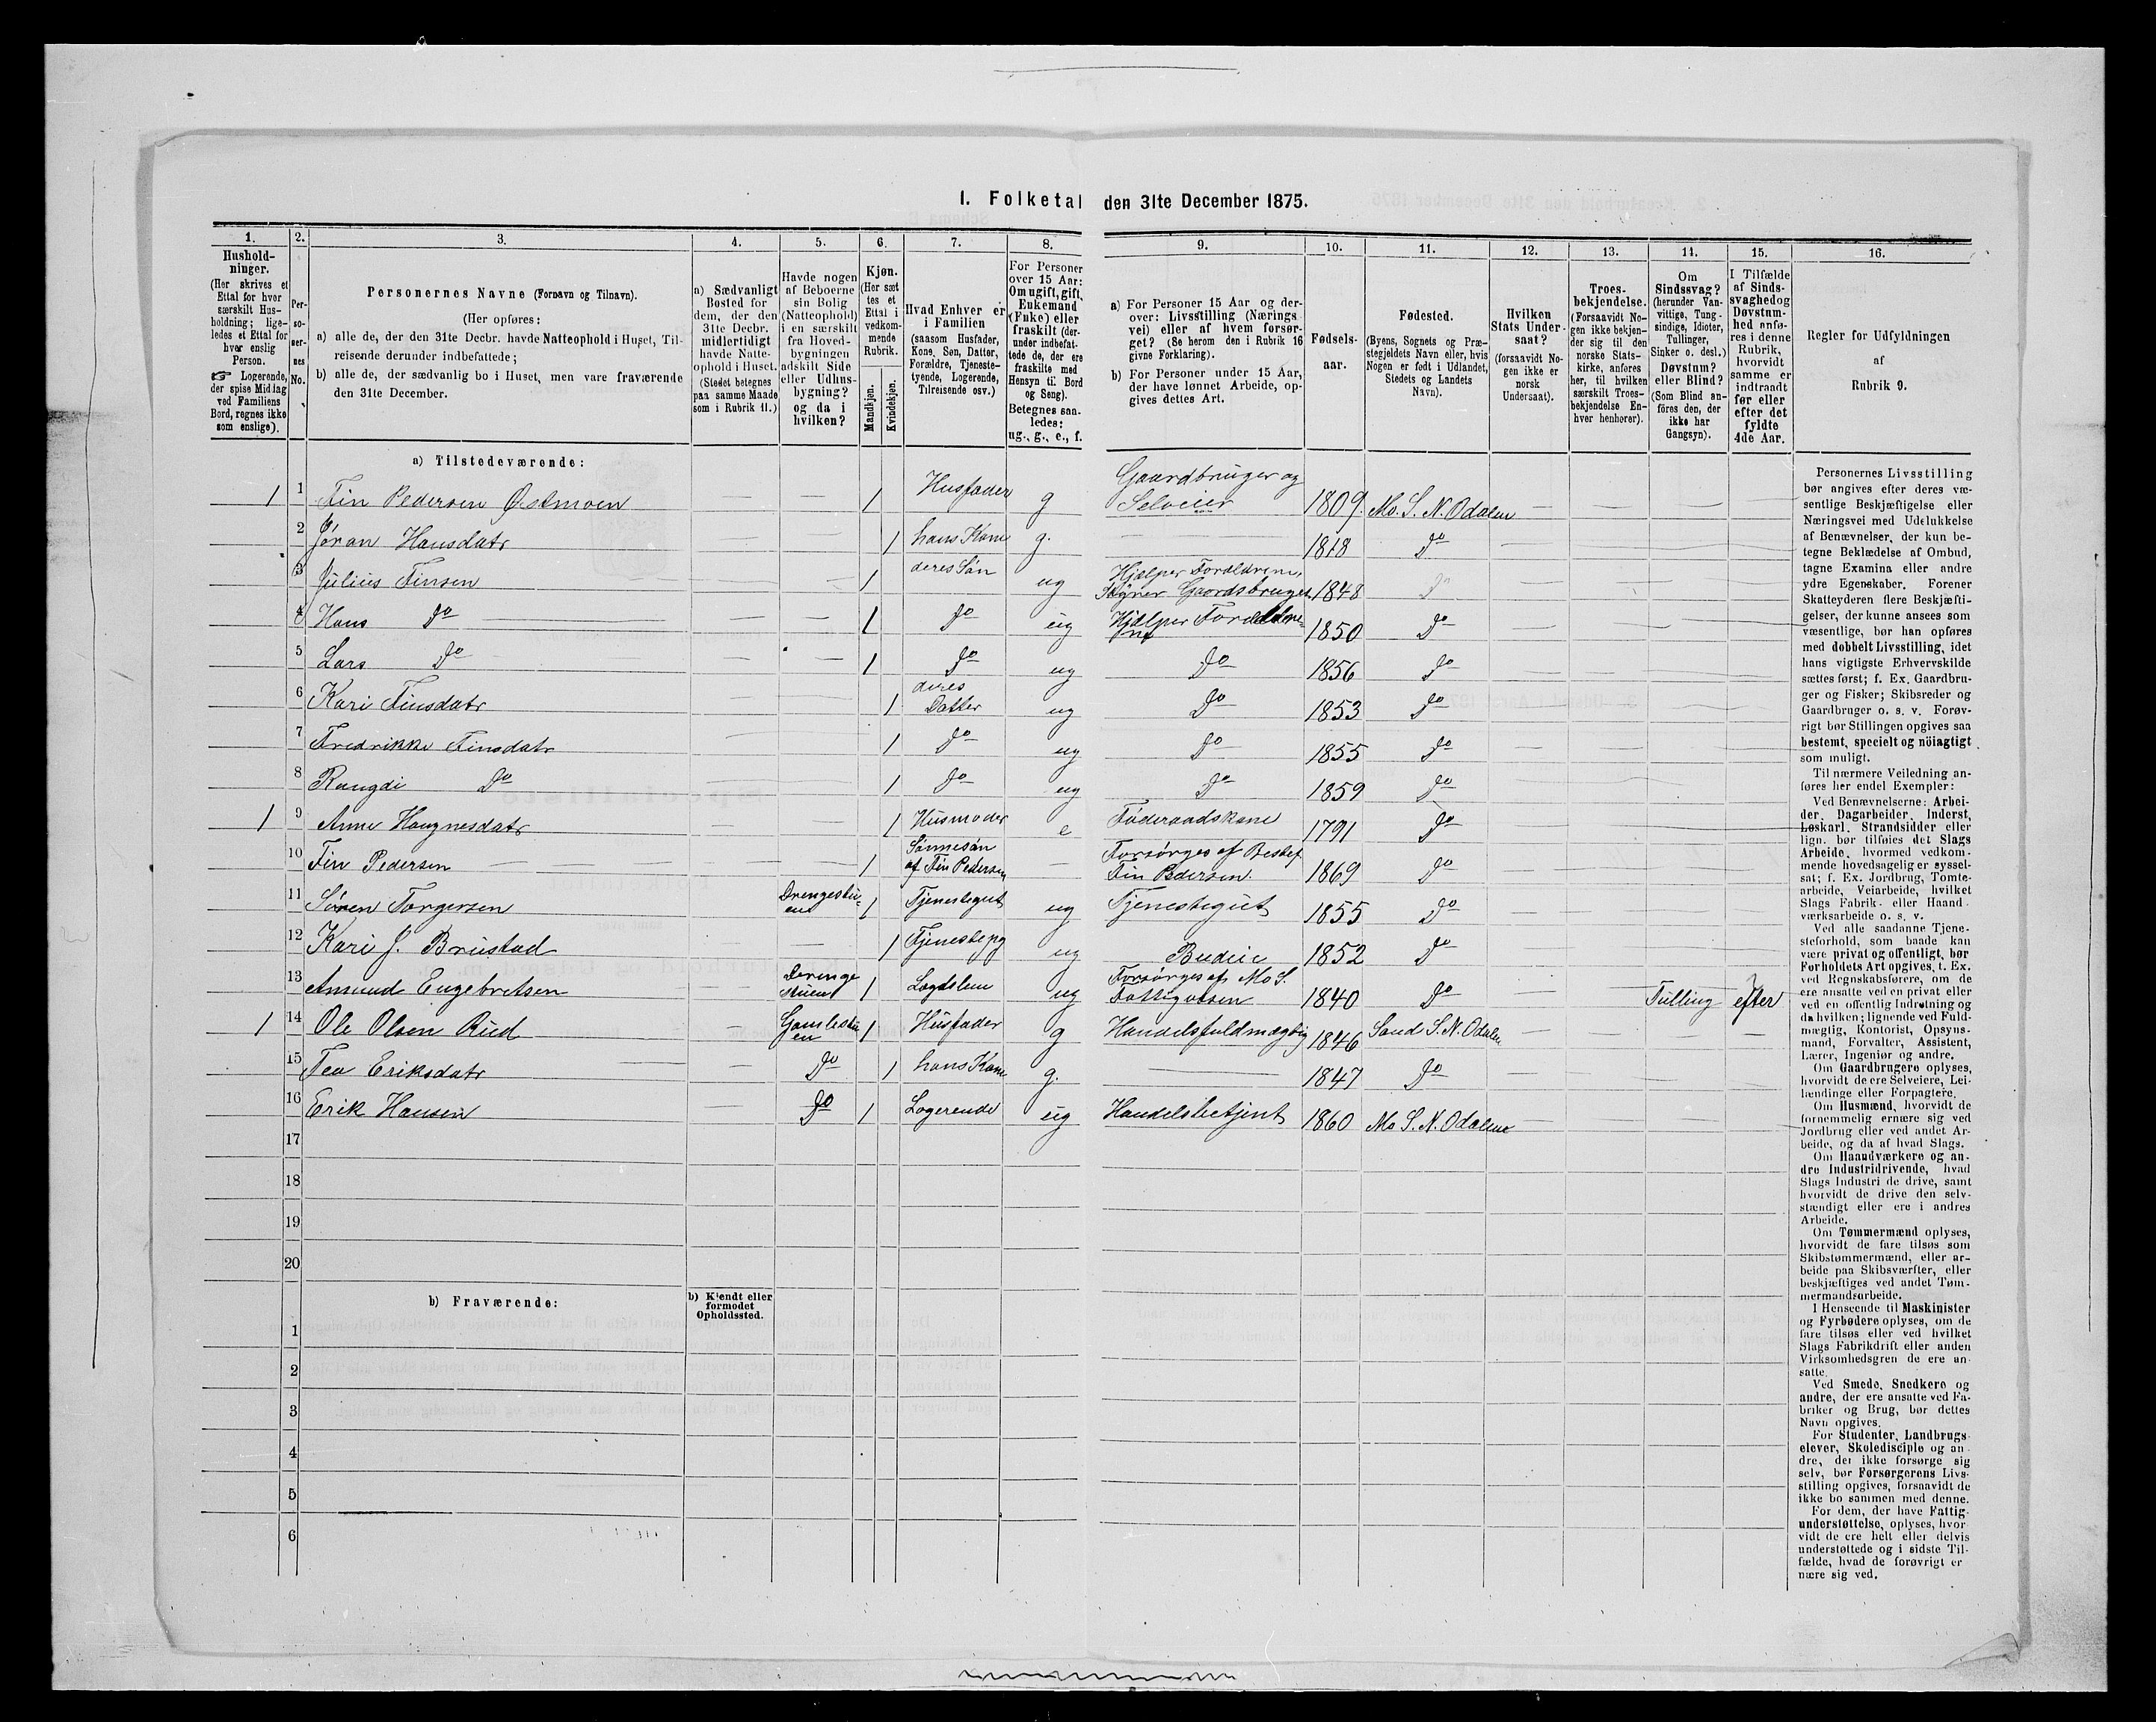 1. Folketal den 31te December 1875.
1. 2. 3. 4. 5. 6. 7. 8. 9. 10. 11. 12. 13. 14. 15. 16.
Hushold-
ninger.
(Her skrives et
Ettal for hver
særskilt Hus-
holdning; lige-
ledes et Ettal for
hver enslig
Person.
☞ Logerende,
der spise Middag
ved Familiens
Bord, regnes ikke
som enslige).
Per-
so-
ner-
nes
No.
Personernes Navne (Fornavn og Tilnavn).
(Her opføres:
a) alle de, der den 31te Decbr. havde Natteophold i Huset, Til-
reisende derunder indbefattede;
b) alle de, der sædvanlig bo i Huset, men vare fraværende
den 31te December.
a) Sædvanligt
Bosted for
dem, der den
31te Decbr.
midlertidigt
havde Natte-
ophold i Huset.
(Stedet betegnes
paa samme Maade
som i Rubrik 11.)
Havde nogen
af Beboerne
sin Bolig
(Natteophold)
i en særskilt
fra Hoved-
bygningen
adskilt Side
eller Udhus-
bygning?
og da i
hvilken?
Kjøn.
(Her sæt
tes et
Ettal i
vedkom-
mende
Rubrik.
Mandkjøn.
Kvindekjøn.
Hvad Enhver er
i Familien
(saasom Husfader,
Kone, Søn, Datter,
Forældre, Tjeneste-
tyende, Logerende,
Tilreisende osv.)
For Personer
over 15 Aar:
Om ugift, gift,
Enkemand
(Enke) eller
fraskilt (der-
under indbefat-
tede de, der ere
fraskilte med
Hensyn til Bord
og Seng).
Betegnes saa-
ledes:
ug., g., e., f.
a) For Personer 15 Aar og der-
over: Livsstilling (Nærings
vei) eller af hvem forsør-
get? (Se herom den i Rubrik 16
givne Forklaring).
b) For Personer under 15 Aar,
der have lønnet Arbeide, op-
gives dettes Art.
Fødsels-
aar.
Fødested.
(Byens, Sognets og Præ-
stegjeldets Navn eller, hvis
Nogen er født i Udlandet,
Stedets og Landets
Navn).
Hvilken
Stats Under-
saat?
(forsaavidt No-
gen ikke er
norsk
Undersaat).
Troes-
bekjendelse.
(Forsaavidt No-
gen ikke bekjen-
der sig til den
norske Stats-
kirke, anføres
her, til hvilken
særskilt Troes-
bekjendelse En-
hver henhører).
Om
Sindssvag?
(herunder Van-
vittige, Tung-
sindige, Idioter,
Tullinger,
Sinker o. desl.)
Døvstum?
eller Blind?
(Som Blind an-
føres den, der
ikke har
Gangsyn).
I Tilfælde
af Sinds-
svaghedog
Døvstum-
hed anfø-
res i denne
Rubrik,
hvorvidt
samme er
indtraadt
før eller
efter det
fyldte
4de Aar.
Regler for Udfyldningen
af
Rubrik 9.
a) Tilstedeværende:
1 1 Fin Pedersen Østmoen — — 1 Husfader g Gaardbruger og
Selveier 1809. Mo. S. N. Odalen — — — —
2 Jøran Hansdatr 1 hans Kone g. — 1818 Do
3 Julius Finsen 1 deres Søn ug Hjælper Forældrene,
Gaardsbruget 1848 Do
4 Hans Do 1 Do ug Hjælper Forældrene 1850 Do
5 Lars Do 1 Do ug Do 1856 Do
6 Kari Finsdatr 1 deres
Datter ug Do 1853 Do
7 Fredrikke Finsdatr 1 Do ug Do 1855 Do
8 Rangdi Do 1 Do ug Do 1859 Do
1 9 Anne Haagnesdatr 1 Husmoder e Føderaadskone 1791 Do
10 Fin Pedersen 1 Sønnesøn
af Fin Pedersen — Forsørges af Bestef
Fin Pedersen. 1869 Do
11 Søren Torgersen Drengestu-
en 1 Tjenestegut ug Tjenestegut 1855 Do
12 Kari J. Brustad 1 Tjenestepg ug Budeie 1852 Do
13 Amund Engebretsen Drenge
stuen 1 Lægdslem ug Forsørges af Mo S.
Fattigvæsen 1840 Do Tulling efter
1 14 Ole Olsen Rud Gamlestu
en 1 Husfader g Handelsfuldmægtig 1846 Sand S. N. Odalen
15 Tea Eriksdatr Do 1 hans Kone g. — 1847 Do
16 Erik Hansen Do 1 Logerende ug Handelsbetjent 1860 Mo S. N. Odalen
17
18
19
20
b) Fraværende:
b) Kjendt eller
formodet
Opholdssted.
1
2
3
4
5
6
Personernes Livsstilling
bør angives efter deres væ-
sentlige Beskjæftigelse eller
Næringsvei med Udelukkelse
af Benævnelser, der kun be-
tegne Beklædelse af Ombud,
tagne Examina eller andre
ydre Egenskaber. Forener
Skatteyderen flere Beskjæfti-
gelser, der kunne ansees som
væsentlige, bør han opføres
med dobbelt Livsstilling, idet
hans vigtigste Erhvervskilde
sættes først; f. Ex. Gaardbru-
ger og Fisker; Skibsreder og
Gaardbruger o. s. v. Forøv-
rigt bør Stillingen opgives saa
bestemt, specielt og nöiagtigt
som muligt.
Til nærmere Veiledning an-
føres her endel Exempler:
Ved Benævnelserne: Arbei-
der, Dagarbeider, Inderst,
Løskarl, Strandsidder eller
lign. bør tilføies det Slags
Arbeide, hvormed vedkom-
mende hovedsagelig er syssel-
sat; f. Ex. Jordbrug, Tomte-
arbeide, Veiarbeide, hvilket
Slags Fabrik- eller Haand-
værksarbeide o. s. v.
Ved alle saadanne Tjene-
steforhold, som baade kan
være privat og offentligt, bør
Forholdets Art opgives, t. Ex.
ved Regnskabsførere, om de
ere ansatte ved en privat eller
ved en offentlig Indretning og
da hvilken; lignende ved Fuld-
mægtig, Kontorist, Opsyns-
mand, Forvalter, Assistent,
Lærer, Ingeniør og andre.
Om Gaardbrugere oplyses,
hvorvidt de ere Selveiere, Lei-
lændinge eller Forpagtere.
Om Husmænd, hvorvidt de
fornemmelig ernære sig ved
Jordbrug eller ved andet Ar-
beide, og da af hvad Slags.
Om Haandværkere og an-
dre Industridrivende, hvad
Slags Industri de drive, samt
hvorvidt de drive den selv-
stændigt eller ere i andres
Arbeide.
Om Tømmermænd oplyses,
hvorvidt de fare tilsøs som
Skibstømmermænd, eller ar-
beide paa Skibsværfter, eller
beskjæftiges ved andet Tøm-
mermandsarbeide.
I Henseende til Maskinister
og Fyrbødere oplyses, om de
fare tilsøs eller ved hvilket
Slags Fabrikdrift eller anden
Virksomhedsgren de ere an-
satte.
Ved Smede, Snedkere og
andre, der ere ansatte ved Fa-
briker og Brug, bør dettes
Navn opgives.
For Studenter, Landbrugs-
elever, Skoledisciple og an-
dre, der ikke forsørge sig
selv, bør Forsørgerens Livs-
stilling opgives, forsaavidt de
ikke bo sammen med denne.
For dem, der have Fattig-
understøttelse, oplyses, hvor-
vidt de ere helt eller delvis
understøttede og i sidste Til-
fælde, hvad de forøvrigt er
nære sig ved.